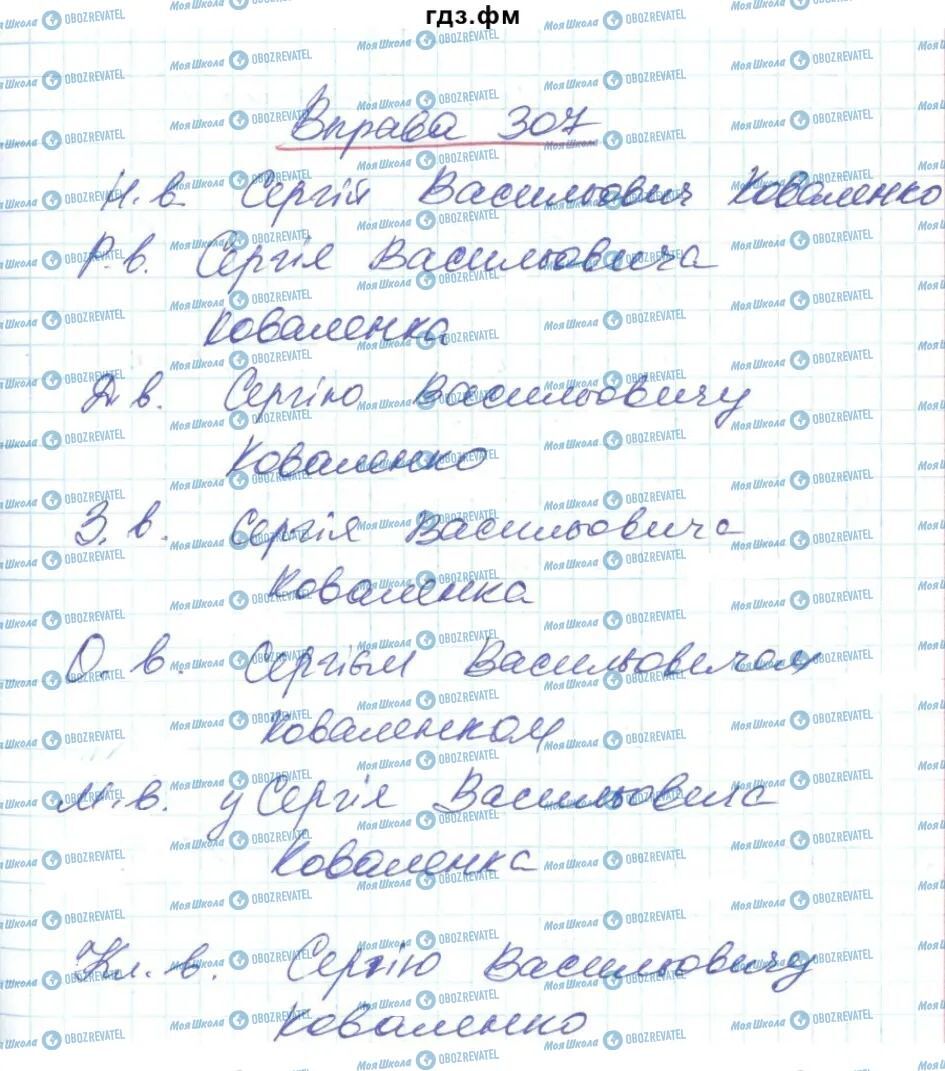 гдз.фм
Вправа 307
Н.в. Сергій Васильович Коваленко
Р.в. Сергія Васильовича
Коваленка
Д.в. Сергію Васильовичу
Коваленко
З.в. Сергія Васильовича
Коваленка
О.в. Сергієм Васильовичом
Коваленком
М.в. у Сергія Васильовича
Коваленка
Кл.в. Сергію Васильовичу
Коваленко
МояШкола OBOZREVATEL